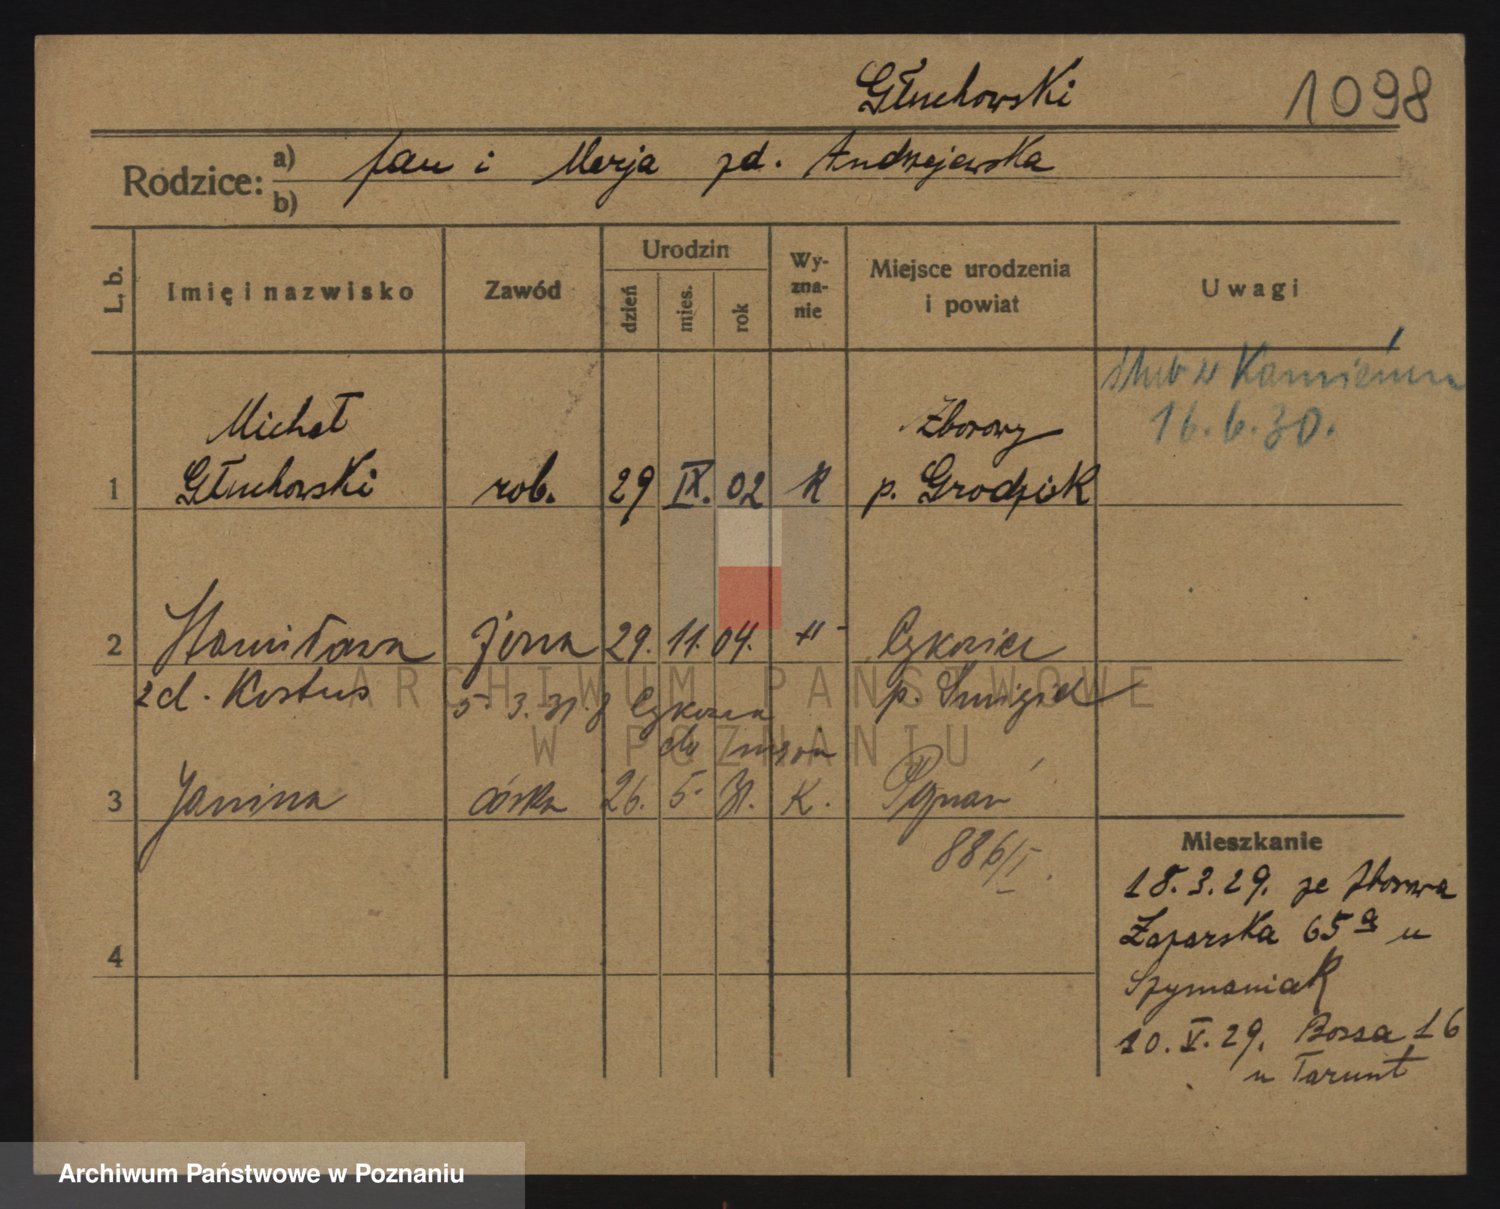 Głuchowski 1098
Rodzice: a) Jan i Marja zd. Andrzejewska
b)
L. b. Imię i nazwisko Zawód Urodzin dzień mies. rok Wyznanie Miejsce urodzenia i powiat Uwagi
ślub w Kamieńcu
16.6.30.
Michał Zborowy
1 Głuchowski rob. 29 IX. 02 K p. Grodzisk
2 Stanisława żona 29. 11. 04. -"- Cykowiec
zd. Kostus 5. 3. 31. z p. Śmigiel
do męża
3 Janina córka 26. 5. 31. K. Poznań
886/I.
4
Mieszkanie
18.3.29. ze Zborowa
Zagórska 65a u
Szymaniak
10.V.29. Bossa 16
u Tarunt
ARCHIWUM PAŃSTWOWE
W POZNANIU
Archiwum Państwowe w Poznaniu